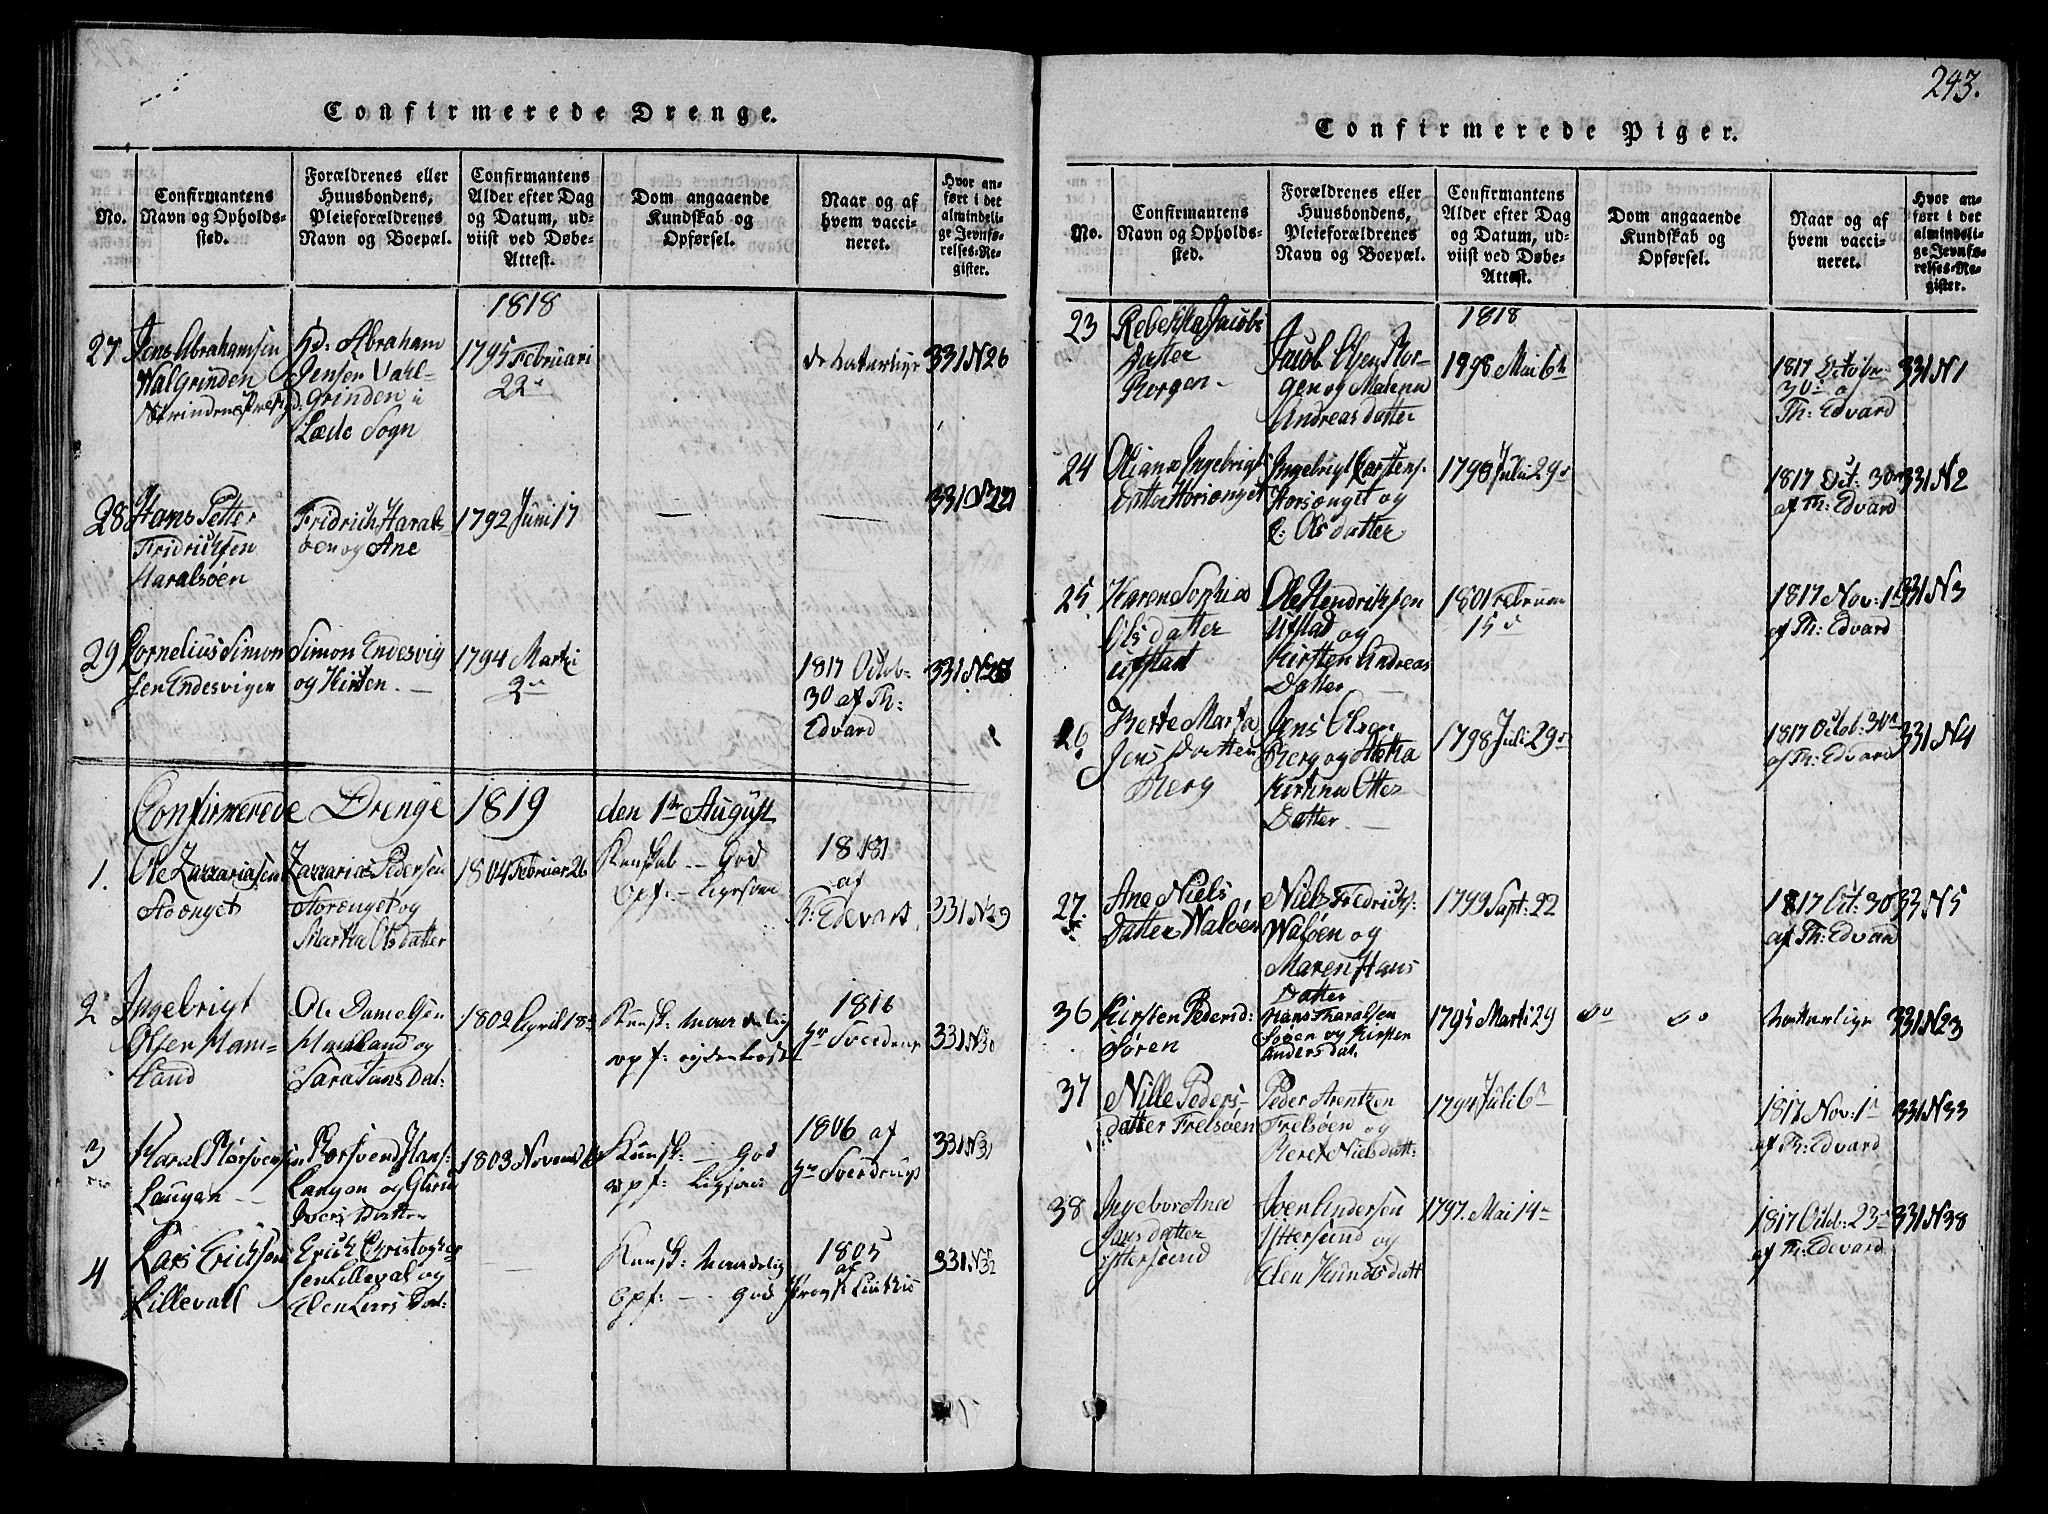 Confirmerede Drenge.
No.
Confirmantens
Navn og Opholds-
sted.
Forældrenes eller
Huusbondens,
Pleieforældrenes
Navn og Boepæl.
Confirmantens
Alder efter Dag
og Datum, ud-
viist ved Døbe-
Attest.
Dom angaaende
Kundskab og
Opførsel.
Naar og af
hvem vacci-
neret.
Hvor an-
ført i det
almindeli-
ge Jevnfø-
relses-Re-
gister.
1818
27
Jens Abrahamsen
Walgrinden
Hd: Abraham
Jensen Vahl-
grinden i
Lade Sogn
1795 Februari
22
331 N 26
28
Hans Petter
Fridrichsen
Haralsøen
Fridrich Harals
øen og Ane
1792 Juni 17
— —
29
Cornelius Simon
sen Endesvigen
Simon Endesvig
og Kirsten. —
1794 Martzi
2
1817 Octob:
30 af Th:
Edvard
331 N 28
Confirmerede Drenge 1819 den 1te August
1.
Ole Zazzariasen
Zazzarias Pedersen
Storenget og
Martha Olsdatter
1804 Februar 26
Kunskab — God
opf: —
af
Th: Edevart
331 N 29
2
Ingebrigt
Olsen Ham=
land
Ole Danielsen
Hamland og
Sara Jans Dat:
1802 April 18
Kunsk: maadelig
opf:
1816
Hr Sverdrup
331 N 30
3
Haral Rørsvensen
Langøn —
Rorsvend Hans:
Langøn og Guru
Ivers Datter
1803 Novemb
Kunsk: — God
opf:
1806 af
Hr Sverdrup
331 N 31
4
Lars Erichsen
Lillevall
Erich Christopher
sen Lilleval og
Elen Lars Dat:
—
Kunsk: Maadelig
opf: — God
1805
af
331 N 32
243.
Confirmerede Piger.
No.
Confirmantens
Navn og Opholds-
sted.
Forældrenes eller
Huusbondens,
Pleieforældrenes
Navn og Boepæl.
Confirmantens
Alder efter Dag
og Datum, ud-
viist ved Døbe-
Attest.
Dom angaaende
Kundskab og
Opførsel.
Naar og af
hvem vacci-
neret.
Hvor an-
ført i det
almindeli-
ge Jevnfø-
relses-Re-
gister.
1818
23
Rebekka Jacobs
Datter
Borgen —
Jacob Olsen Bor-
gen og Malena
Andreas datter
1798 Mai 6
1817 Octobr
30 af
Th: Edvard
331 N 1
24
Oliana Ingebrigts
datter Horsenget
Ingebrigt Carstens.
Horsønget og
E: Olsdatter
1798 Juli 29
1817 Oct: 30
af Th: Edvard
331 N 2
25.
Karen Sophia
Olsdatter
Ufstad
Ole Hendriksen
Ufstad og
Kirsten Andreas
Datter —
1801 Februar
15
1817 Nov: 1
af Th: Edvard
331 N 3
26
Berte Marta
Jens Datter
Berg
Jens Olsen
Berg og
Kirstina Ottes
Datter —
1798 Juli 29
1817 Octob: 30
af Th: Edvard
331 N 4
27.
Ane Niels
Datter Waløen
Niels Fredrichs:
Waløen og
Maren Hans
Datter
1799 Sept: 22
1817 Oct: 30
af Th: Edvard
331 N 5
36
Kirsten Pedersd:
Søren
Søren og Kirsten
Anders dat.
1795 Marti 29
do do
Naturlige
331 N 23
37
Nille Peders-
datter Frelsøen
Peder Arentzen
Frelsøen og
Beret Niels datt:
1794 Juli 6
1817 Nov: 1
af Th: Edvard
331 N 33
38
Ingebor Ana
Jons datter
Ittersund
Joen Andersen
Ittersund og
Elen Knuds datt
1797. Mai 14
1817 Octob: 23
af Th: Edvard
331 N 38